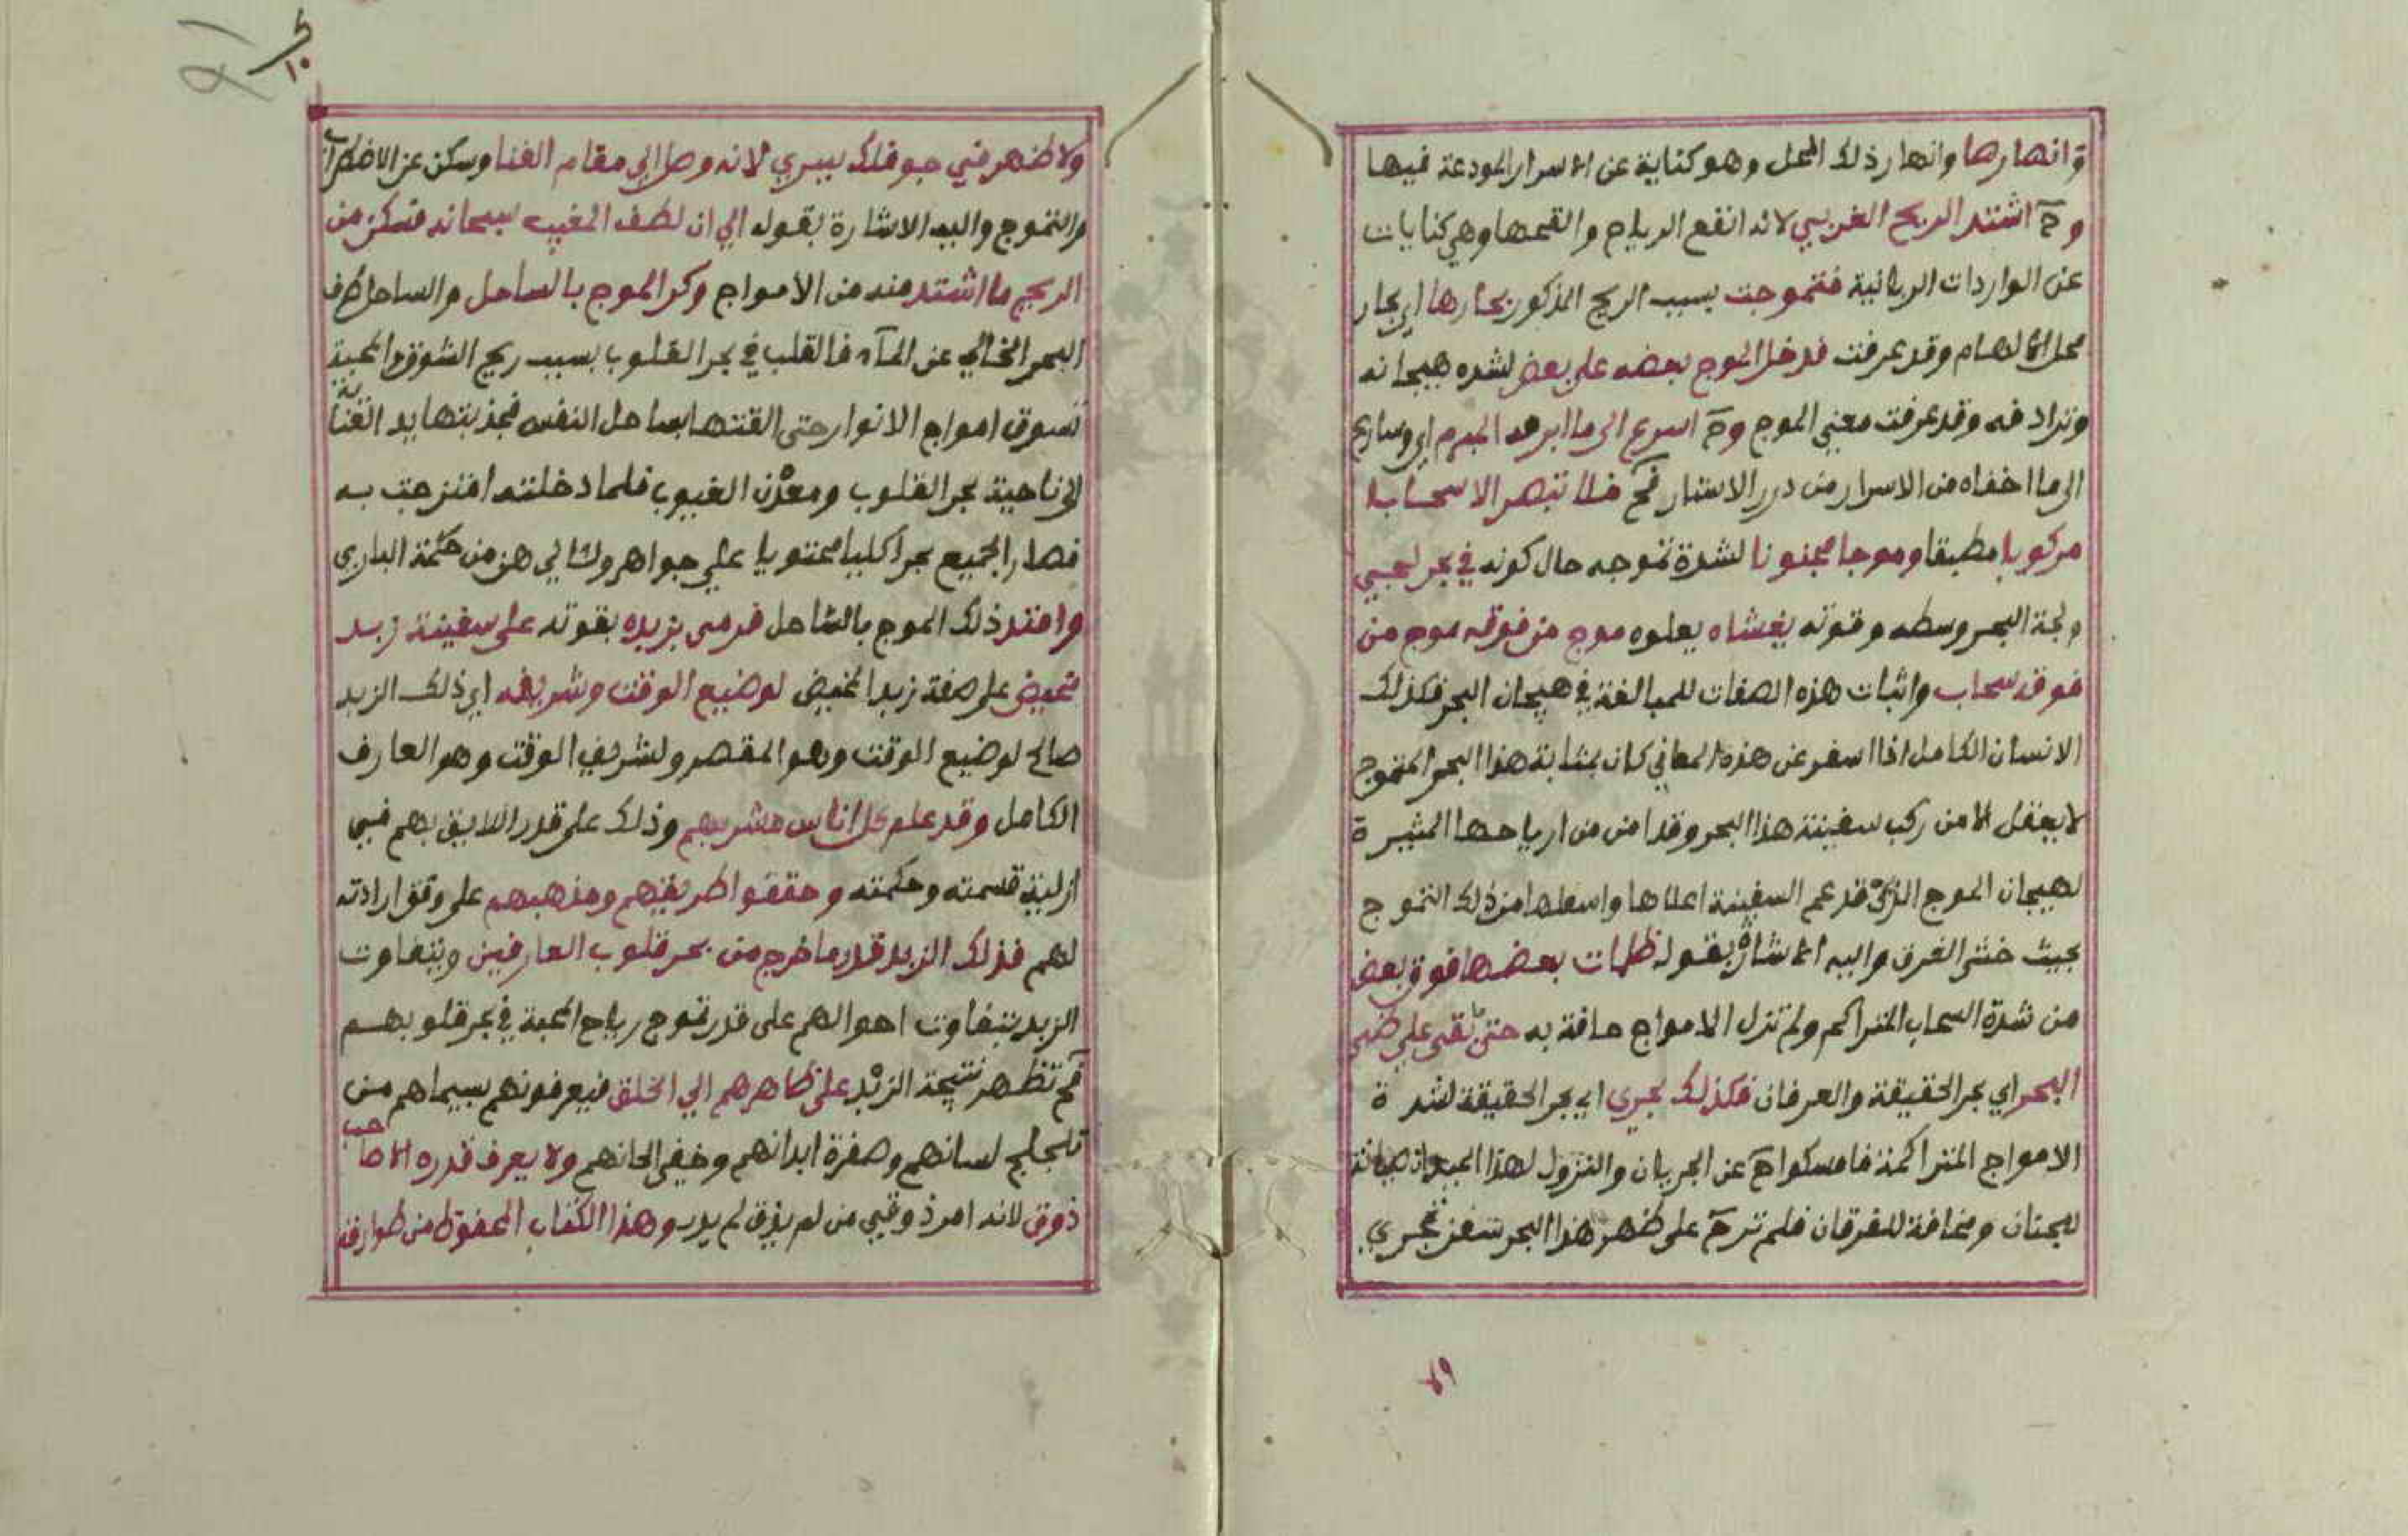 وانهارها وانهار ذلك المحل وهو كناية عن الاسرار المودعة فيها
وحٓ اشتد الريح الغربي لانه انفع الرياح والقحها وهي كنايات
عن الواردات الربانية فتموجت بسبب الريح المذكور بحارها اي بحار
محل الالهام وقد عرفت فدخل الموج بعضه على بعض لشده هيجانه
وترادفه وقد عرفت معني الموج وحٓ اسرع الى ما ابرمه المبرم اي وسارع
الى ما اخفاه من الاسرار من درر الاستار فحٓ فلا تبصر الا سحابا
مركوبا مطبقا وموجا مجنونا لشدة تموجه حال كونه في بحر لجيي
ولجة البحر وسطه وقوته يغشاه يعلوه موج من فوقه موج من
فوقه سحاب واثبات هذه الصفات للمبالغة في هيجان البحر فكذلك
الانسان الكامل اذا اسفر عن هذه المعاني كان بمثابة هذا البحر المتموج
لا يغفل الا من ركب سفينة هذا البحر وقد امن من ارياحها المثيرة
لهيجان الموج الذي قد عم السفينة اعلاها واسفلها من ذلك التموج
بحيث خشى الغرق واليه الاشارة بقوله ظلمات بعضها فوق بعض
من شدة السحاب المتراكم ولم تزل الامواج حافة به حتى بقى على
البحر اي بحر الحقيقة والعرفان فكذلك يجري اي بحر الحقيقة لشدة
الامواج المتراكمة فامسكوا حٓ عن الجريان والنزول لهذا
للجنان ومخافة للغرقان فلم ترحٓ على ظهر هذا البحر سفن تجري
٤٩
١٠
ولا ظهر في جو فلك يسري لانه وصل الى مقام الفنا وسكن عن الاضطراب
والتموج واليه الاشارة بقوله الي ان لطف المغيب سبحانه فسكن من
الريح ما اشتد منه من الامواج وكر الموج بالساحل والساحل طرف
البحر الخالي عن المآء فالقلب في بحر القلوب بسبب ريح الشوق والمحبة
تسوق امواج الانوار حتى القتها بساحل النفس فجذبتها يد العناية
الي ناحية بحر القلوب ومعدن الغيوب فلما دخلته امتزجت به
فصار الجميع بحرا كليا محتويا علي جواهر ولئالي هن من حكمة الباري
وامتد ذلك الموج بالساحل فرمى بزبده بقوته على سفينة زبد
مخيض على صفة زبد المخيض لوضيع الوقت وشريفه اي ذلك الزبد
صالح لوضيع الوقت وهو المقصر ولشريف الوقت وهو العارف
الكامل وقد علم كل اناس مشربهم وذلك على قدر اللايق بهم في
ازلية قسمته وحكمته وحققوا طريقتهم ومذهبهم على وفق ارادته
لهم فذلك الزبد قدر ما خرج من بحر قلوب العارفين ويتفاوت
الزبد بتفاوت احوالهم على قدر تموج رياح المحبة في بحر قلوبهم
فحٓ تظهر نتيجة الزبد على ظاهرهم الي الخلق فيعرفونهم بسيماهم من
تلجلج لسانهم وصفرة ابدانهم وخفى الحانهم ولا يعرف قدره الا صاحب
ذوق لانه امر ذوقيي من لم يذق لم يدر وهذا الكتاب المحفوظ من طوارقه